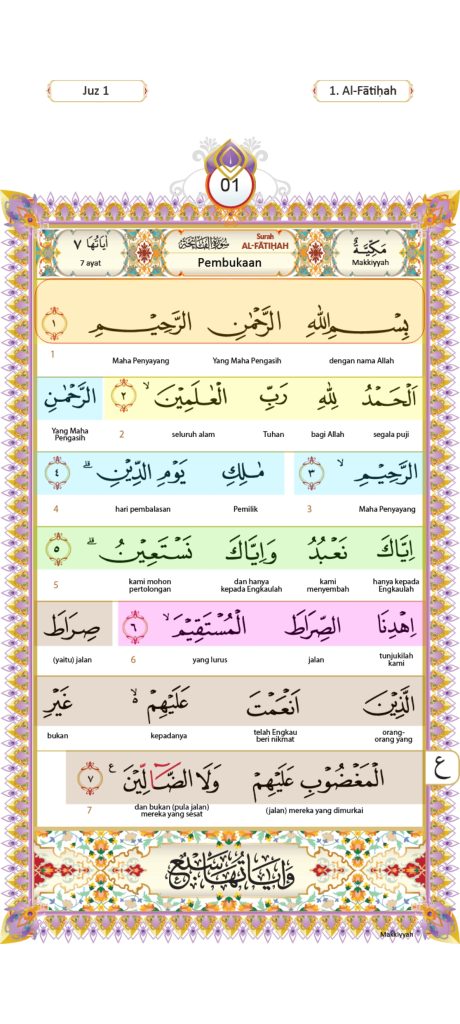 Juz 1
1. Al-Fātiḥah
01
اٰيَاتُهَا ٧
7 ayat
سُوْرَةُ الْفَاتِحَةِ
Surah
AL-FĀTIḤAH
Pembukaan
مَكِّيَّةٌ
Makkiyyah
بِسْمِ اللّٰهِ الرَّحْمٰنِ الرَّحِيْمِ ١
dengan nama Allah Yang Maha Pengasih Maha Penyayang 1
اَلْحَمْدُ لِلّٰهِ رَبِّ الْعٰلَمِيْنَۙ ٢ الرَّحْمٰنِ
segala puji bagi Allah Tuhan seluruh alam 2 Yang Maha Pengasih
الرَّحِيْمِۙ ٣ مٰلِكِ يَوْمِ الدِّيْنِۗ ٤
Maha Penyayang 3 Pemilik hari pembalasan 4
اِيَّاكَ نَعْبُدُ وَاِيَّاكَ نَسْتَعِيْنُۗ ٥
hanya kepada Engkaulah kami menyembah dan hanya kepada Engkaulah kami mohon pertolongan 5
اِهْدِنَا الصِّرَاطَ الْمُسْتَقِيْمَۙ ٦ صِرَاطَ
tunjukilah kami jalan yang lurus 6 (yaitu) jalan
الَّذِيْنَ اَنْعَمْتَ عَلَيْهِمْ ەۙ غَيْرِ
orang-orang yang telah Engkau beri nikmat kepadanya bukan
ع
الْمَغْضُوْبِ عَلَيْهِمْ وَلَا الضَّاۤلِّيْنَ ࣖ ٧
(jalan) mereka yang dimurkai dan bukan (pula jalan) mereka yang sesat 7
وَاٰيَاتُهَا سَبْعٌ
Makkiyyah